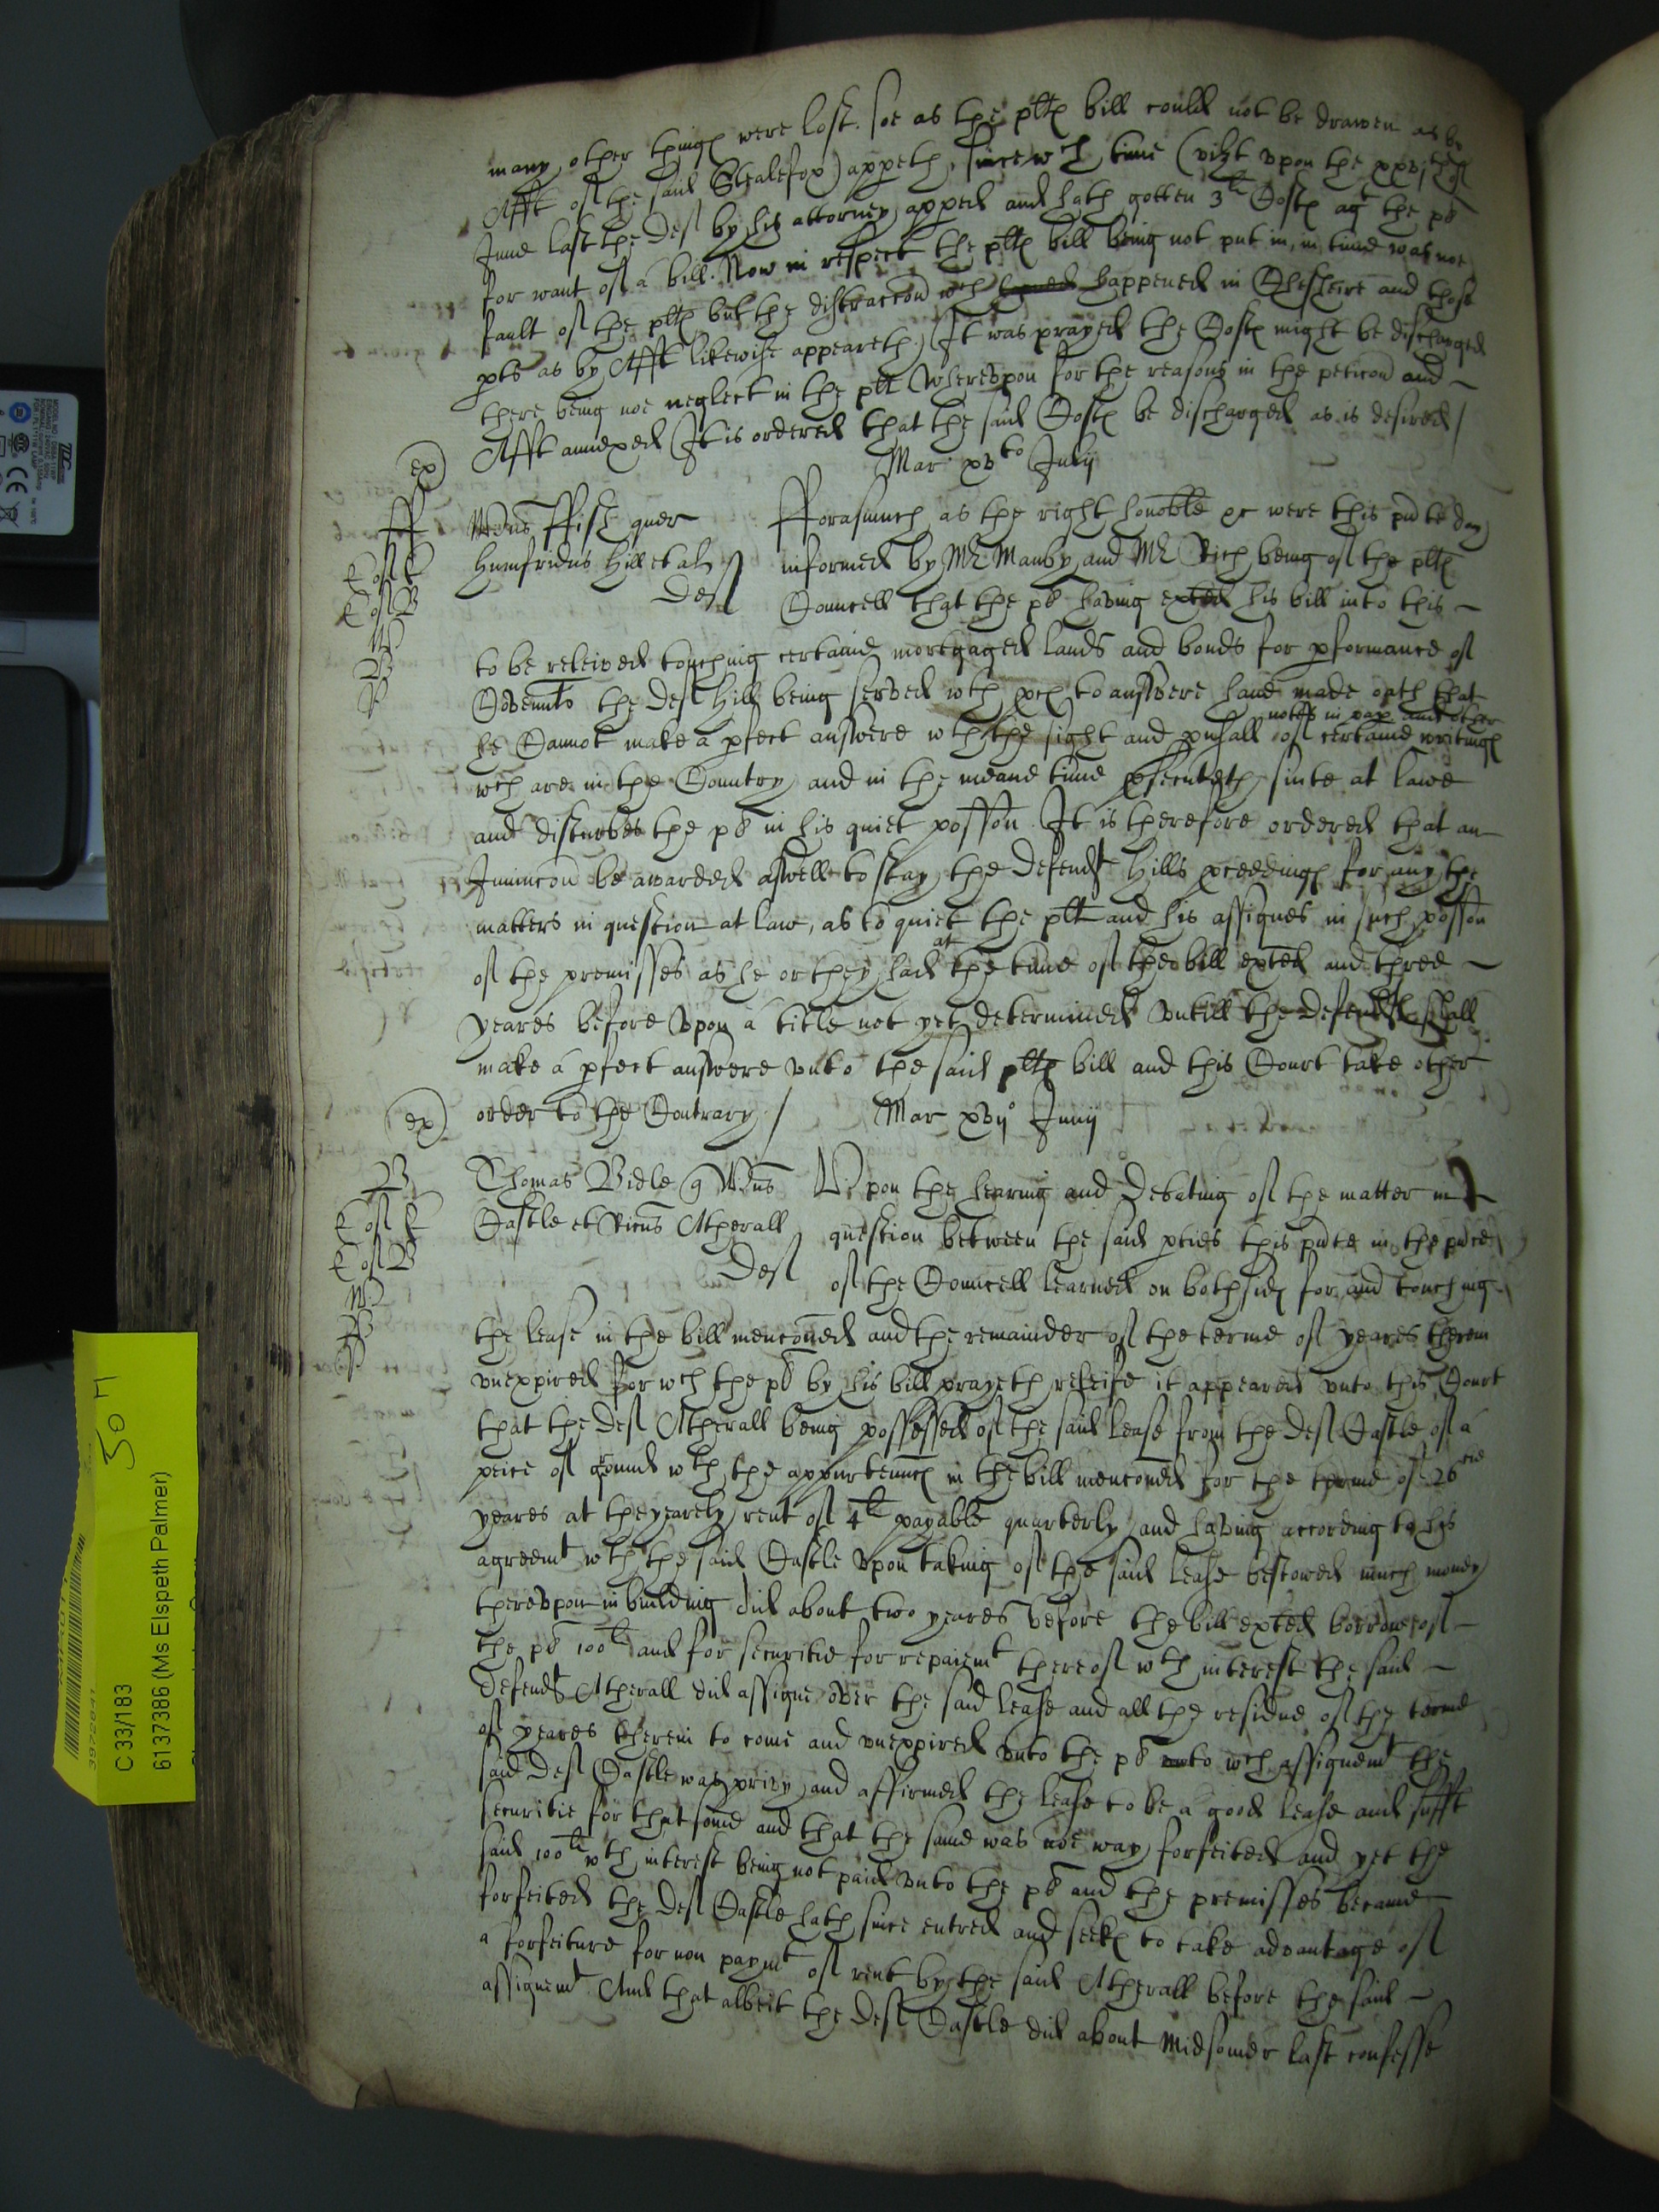 many other things were lost. soe as the plts bill could not be drawen as by
Afft of the said Stealefox) appeth, since wch time (vizt vpon the xxvjth of
June last the Def by his attorney apped and hath gotten 3li Costs agt the pt
for want of a bill. Now in respect the plts bill being not put in, in time was noe
fault of the plts but the distraccon wch happened in Chesheire and those
pts as by Afft likewise appeareth. It was prayed the Costs might be discharged
there being noe neglect in the plt Wherevpon for the reasons in the peticon and
Afft annexed It is ordered that the said Costs be discharged as is desired /
ex
Mar xvto Julij
ff
Willms ffish quer
Humfridus Hill et al
Def
fforasmuch as the right honoble &c were this pnte day
informed by Mr Manby and Mr Rich being of the plts
Councell that the pt having exted his bill into this
to be releived touching certaine mortgaged lands and bonds for pformance of
Covennts the Def Hill being served wth pces to answere hand made oath that
he Cannot make a pfect answere wth the sight and pusall of certaine writings
notes in pap and other
wch are in the Country and in the meane time psecuteth suite at lawe
and disturbes the pt in his quiet posson It is therefore ordered that an
Iniuncon be awarded aswell to stay the Defendt Hills pceedings for any the
matters in question at law, as to quiet the plt and his assignes in such posson
of the premisses as he or they had at the time of the bill exted and three
yeares before vpon a title not yet determined vntill the Defendts shall
make a pfect answere vnto the said plts bill and this Court take other
order to the Contrary /
ex
Mar xvij° Junij
Thomas Bidle q Willms
Castle et Ricus Atherall
Def
Vpon the hearing and Debating of the matter in
question between the said pties this pnte in the pnce
of the Councell learned on both sids for and touching
the lease in the bill menconed and the remainder of the terme of yeares therein
vnexpired for wch the pt by his bill prayeth releife it appeared vnto this Court
that the Def Atherall being possessed of the said lease from the Def Castle of a
peice of ground wth the appurtenncs in the bill menconed for the terme of 26
yeares at the yearely rent of 4li payable quarterly and having according to his
agreemt wth the said Castle vpon taking of the said lease bestowed much money
therevpon in building did about two yeares before the bill exted borrowe of
the pt 100li and for securitie for repaiemt thereof wth interest the said
Defendt Atherall did assigne over the said lease and all the residue of the terme
of yeares therein to come and vnexpired vnto the pt vnto wch assignemt the
said Def Castle was privy and affirmed the lease to be a good lease and sufft
securitie for that some and that the same was noe way forfeited and yet the
said 100li wth interest being not paid vnto the pt and the premisses became
forfeited the Def Castle hath since entred and seeks to take advantage of
a forfeiture for non paymt of rent by the said Atherall before the said
assignemt And that albeit the Def Castle did about Midsomer last confesse
C 33/183
6137386 (Ms Elspeth Palmer)